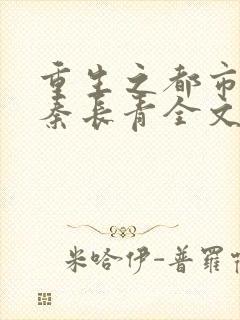 重生之都市
秦长青全文
米哈伊-普罗